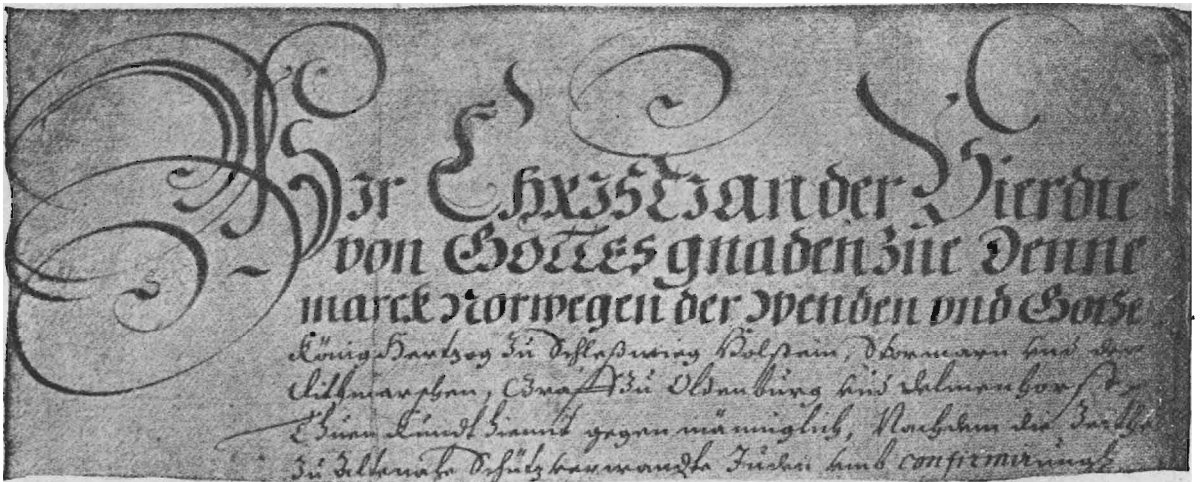 Wir CHRISTIAN der Vierdte
von GOTTES gnaden zue Denne
marck Norwegen der Wenden vnd Gothe
König Hertzog zu Schleßwieg Holstein, Stormarn vnd der
Dittmarschen, Graff zu Oldenburg vnd Delmenhorst,
Thuen kundt hiemit gegen männiglich, Nachdem die
zu Altenahe Schutzverwandte Juden vmb confirmirung